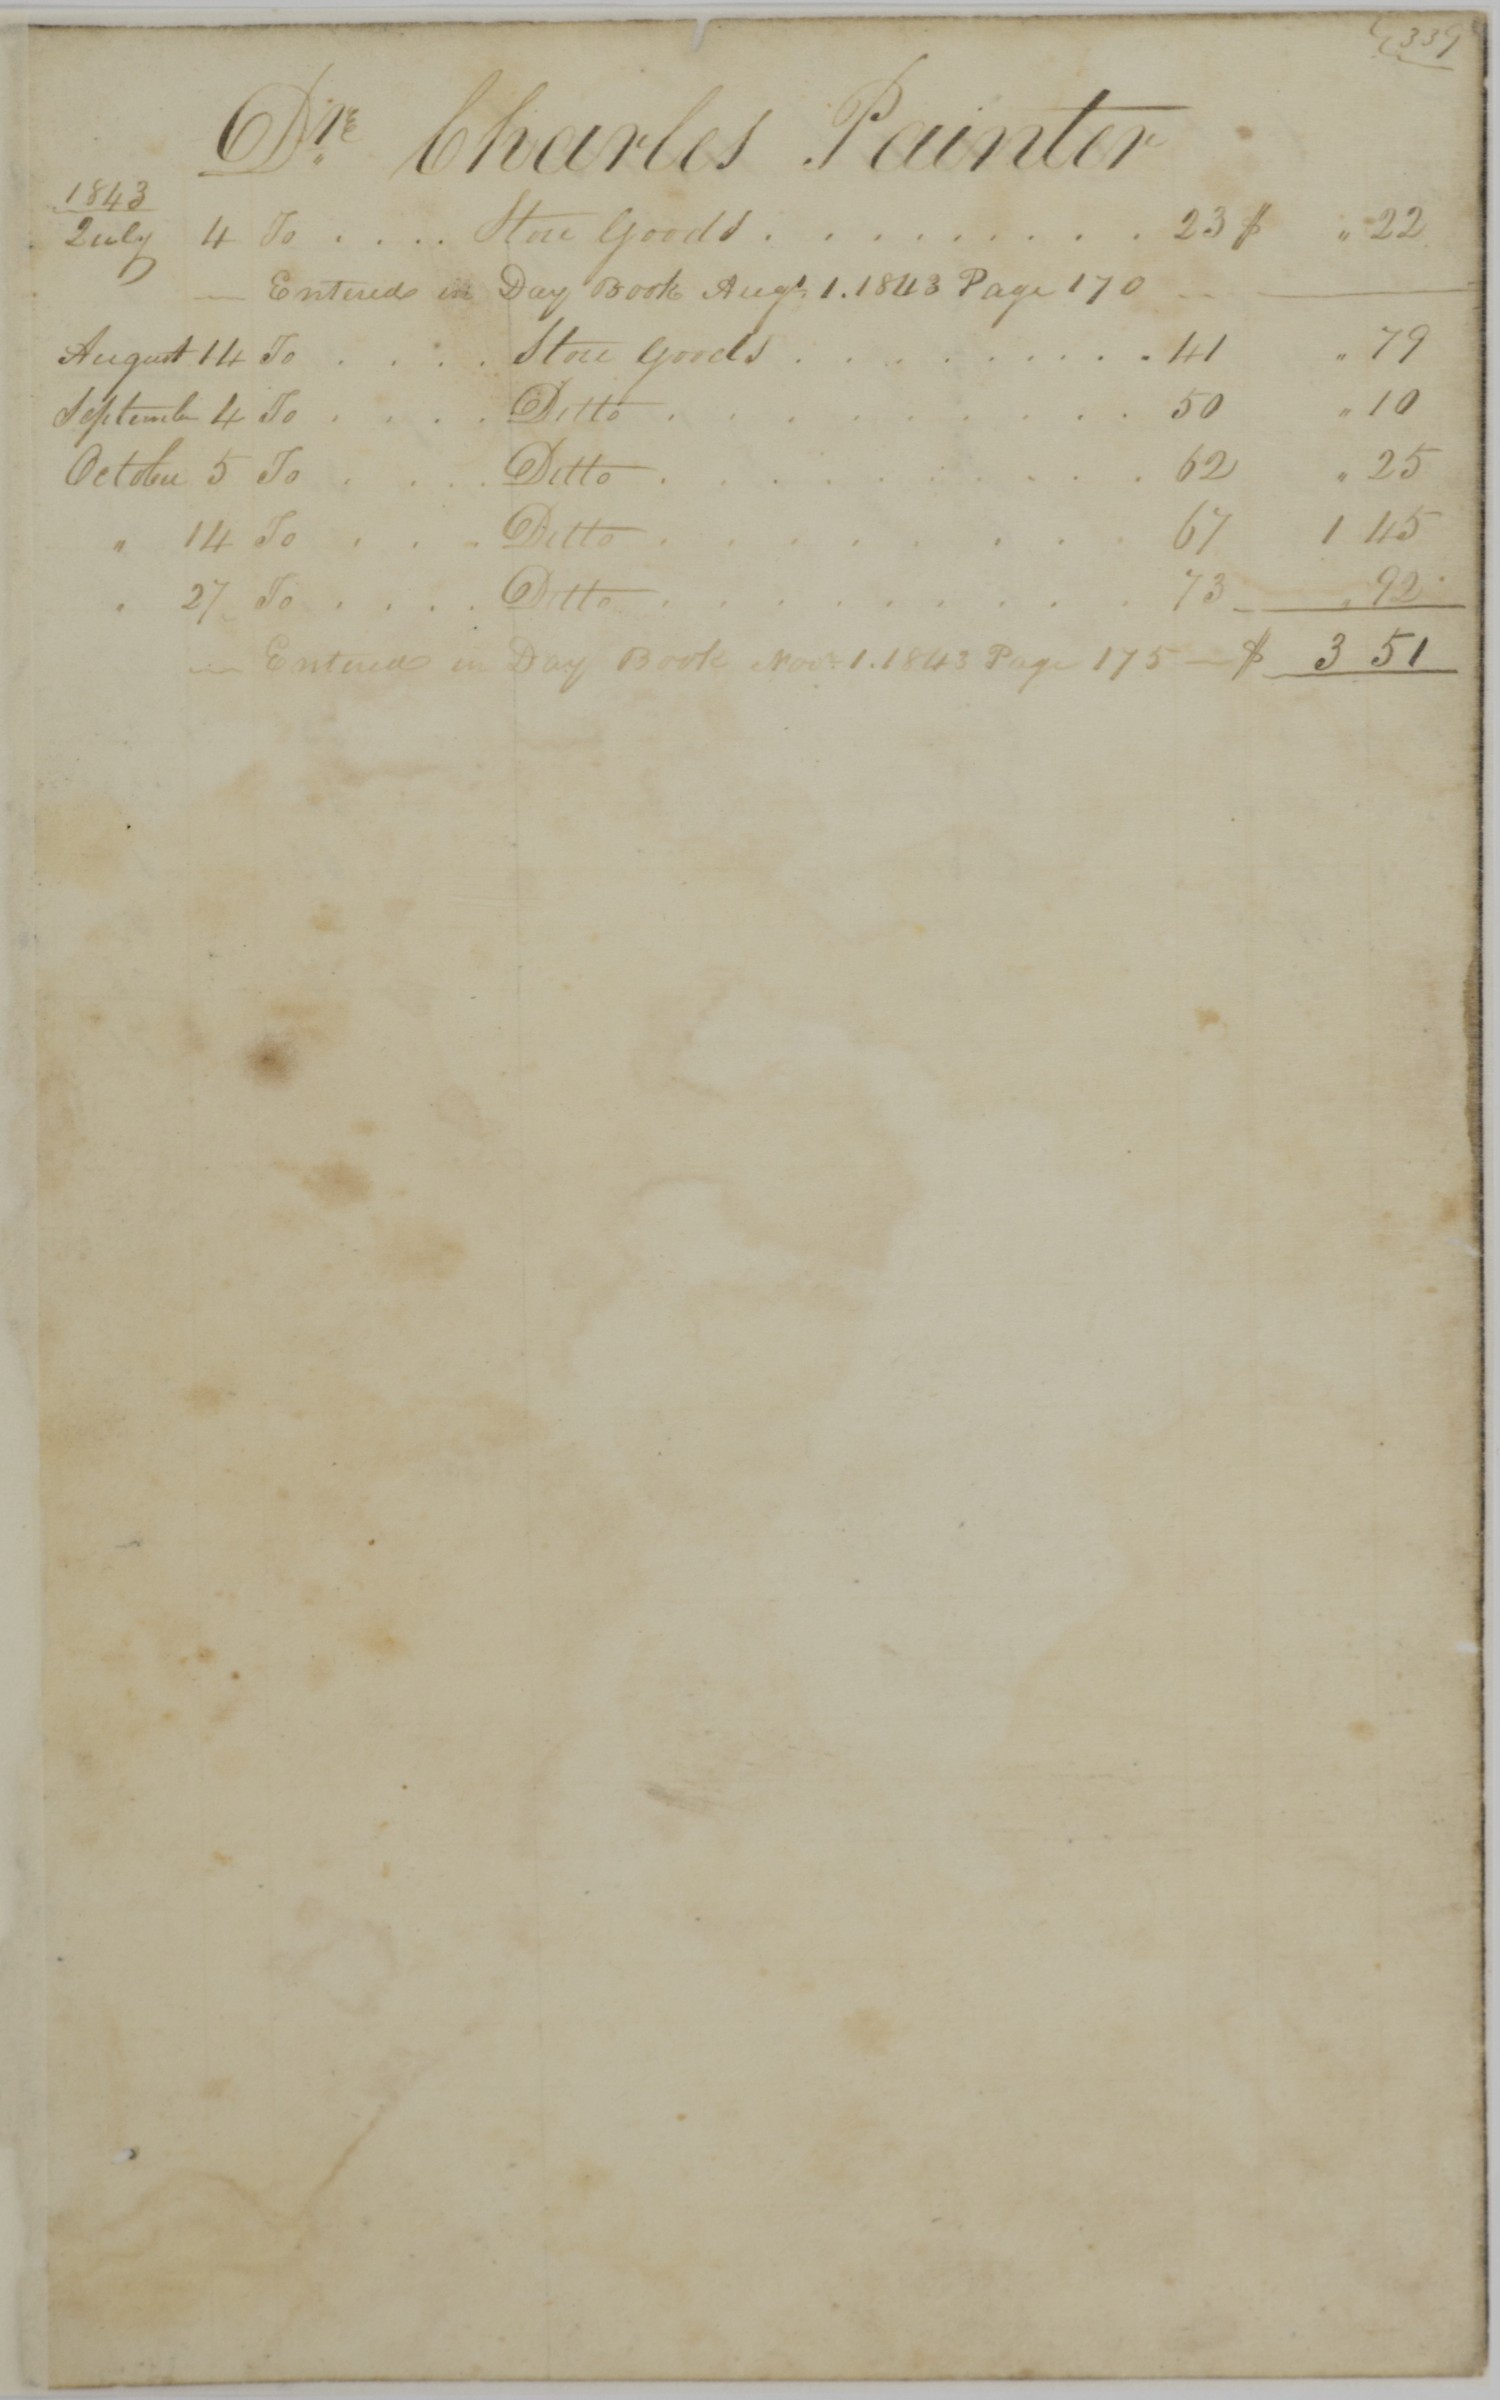 339
Dr. Charles Painter
1843
July 4 To . . . . Store Goods . . . . . . . . . 23 $ " 22
— Entered in Day Book Augt. 1. 1843 Page 170 —
August 14 To . . . . Store Goods . . . . . . . . . 41 " 79
September 4 To . . . . Ditto . . . . . . . . . . 50 " 10
October 5 To . . . . Ditto . . . . . . . . . . 62 " 25
" 14 To . . . Ditto . . . . . . . . . 67 1 45
" 27 To . . . . Ditto . . . . . . . . . . 73 " 92
— Entered in Day Book Novr. 1. 1843 Page 175 — $ 3 51